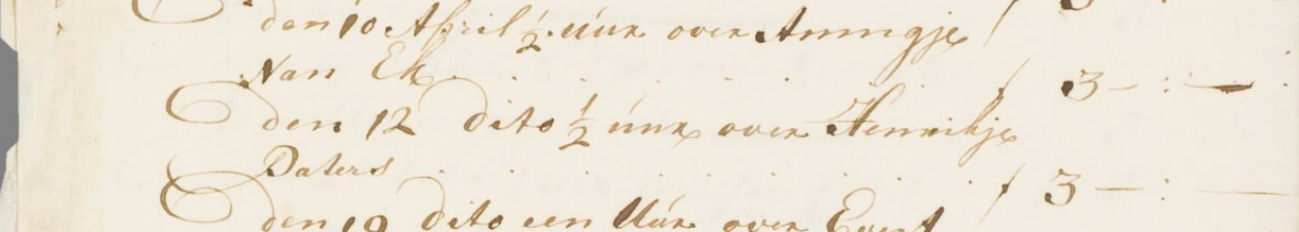 den 10 April ½ úúr over Annigje
Van Ek . . . . . . f 3 – : —
den 12 dito ½ úúr over Henrikje
Daters . . . . . . . f 3 — : —
den 19 dito een Uúr over Evert